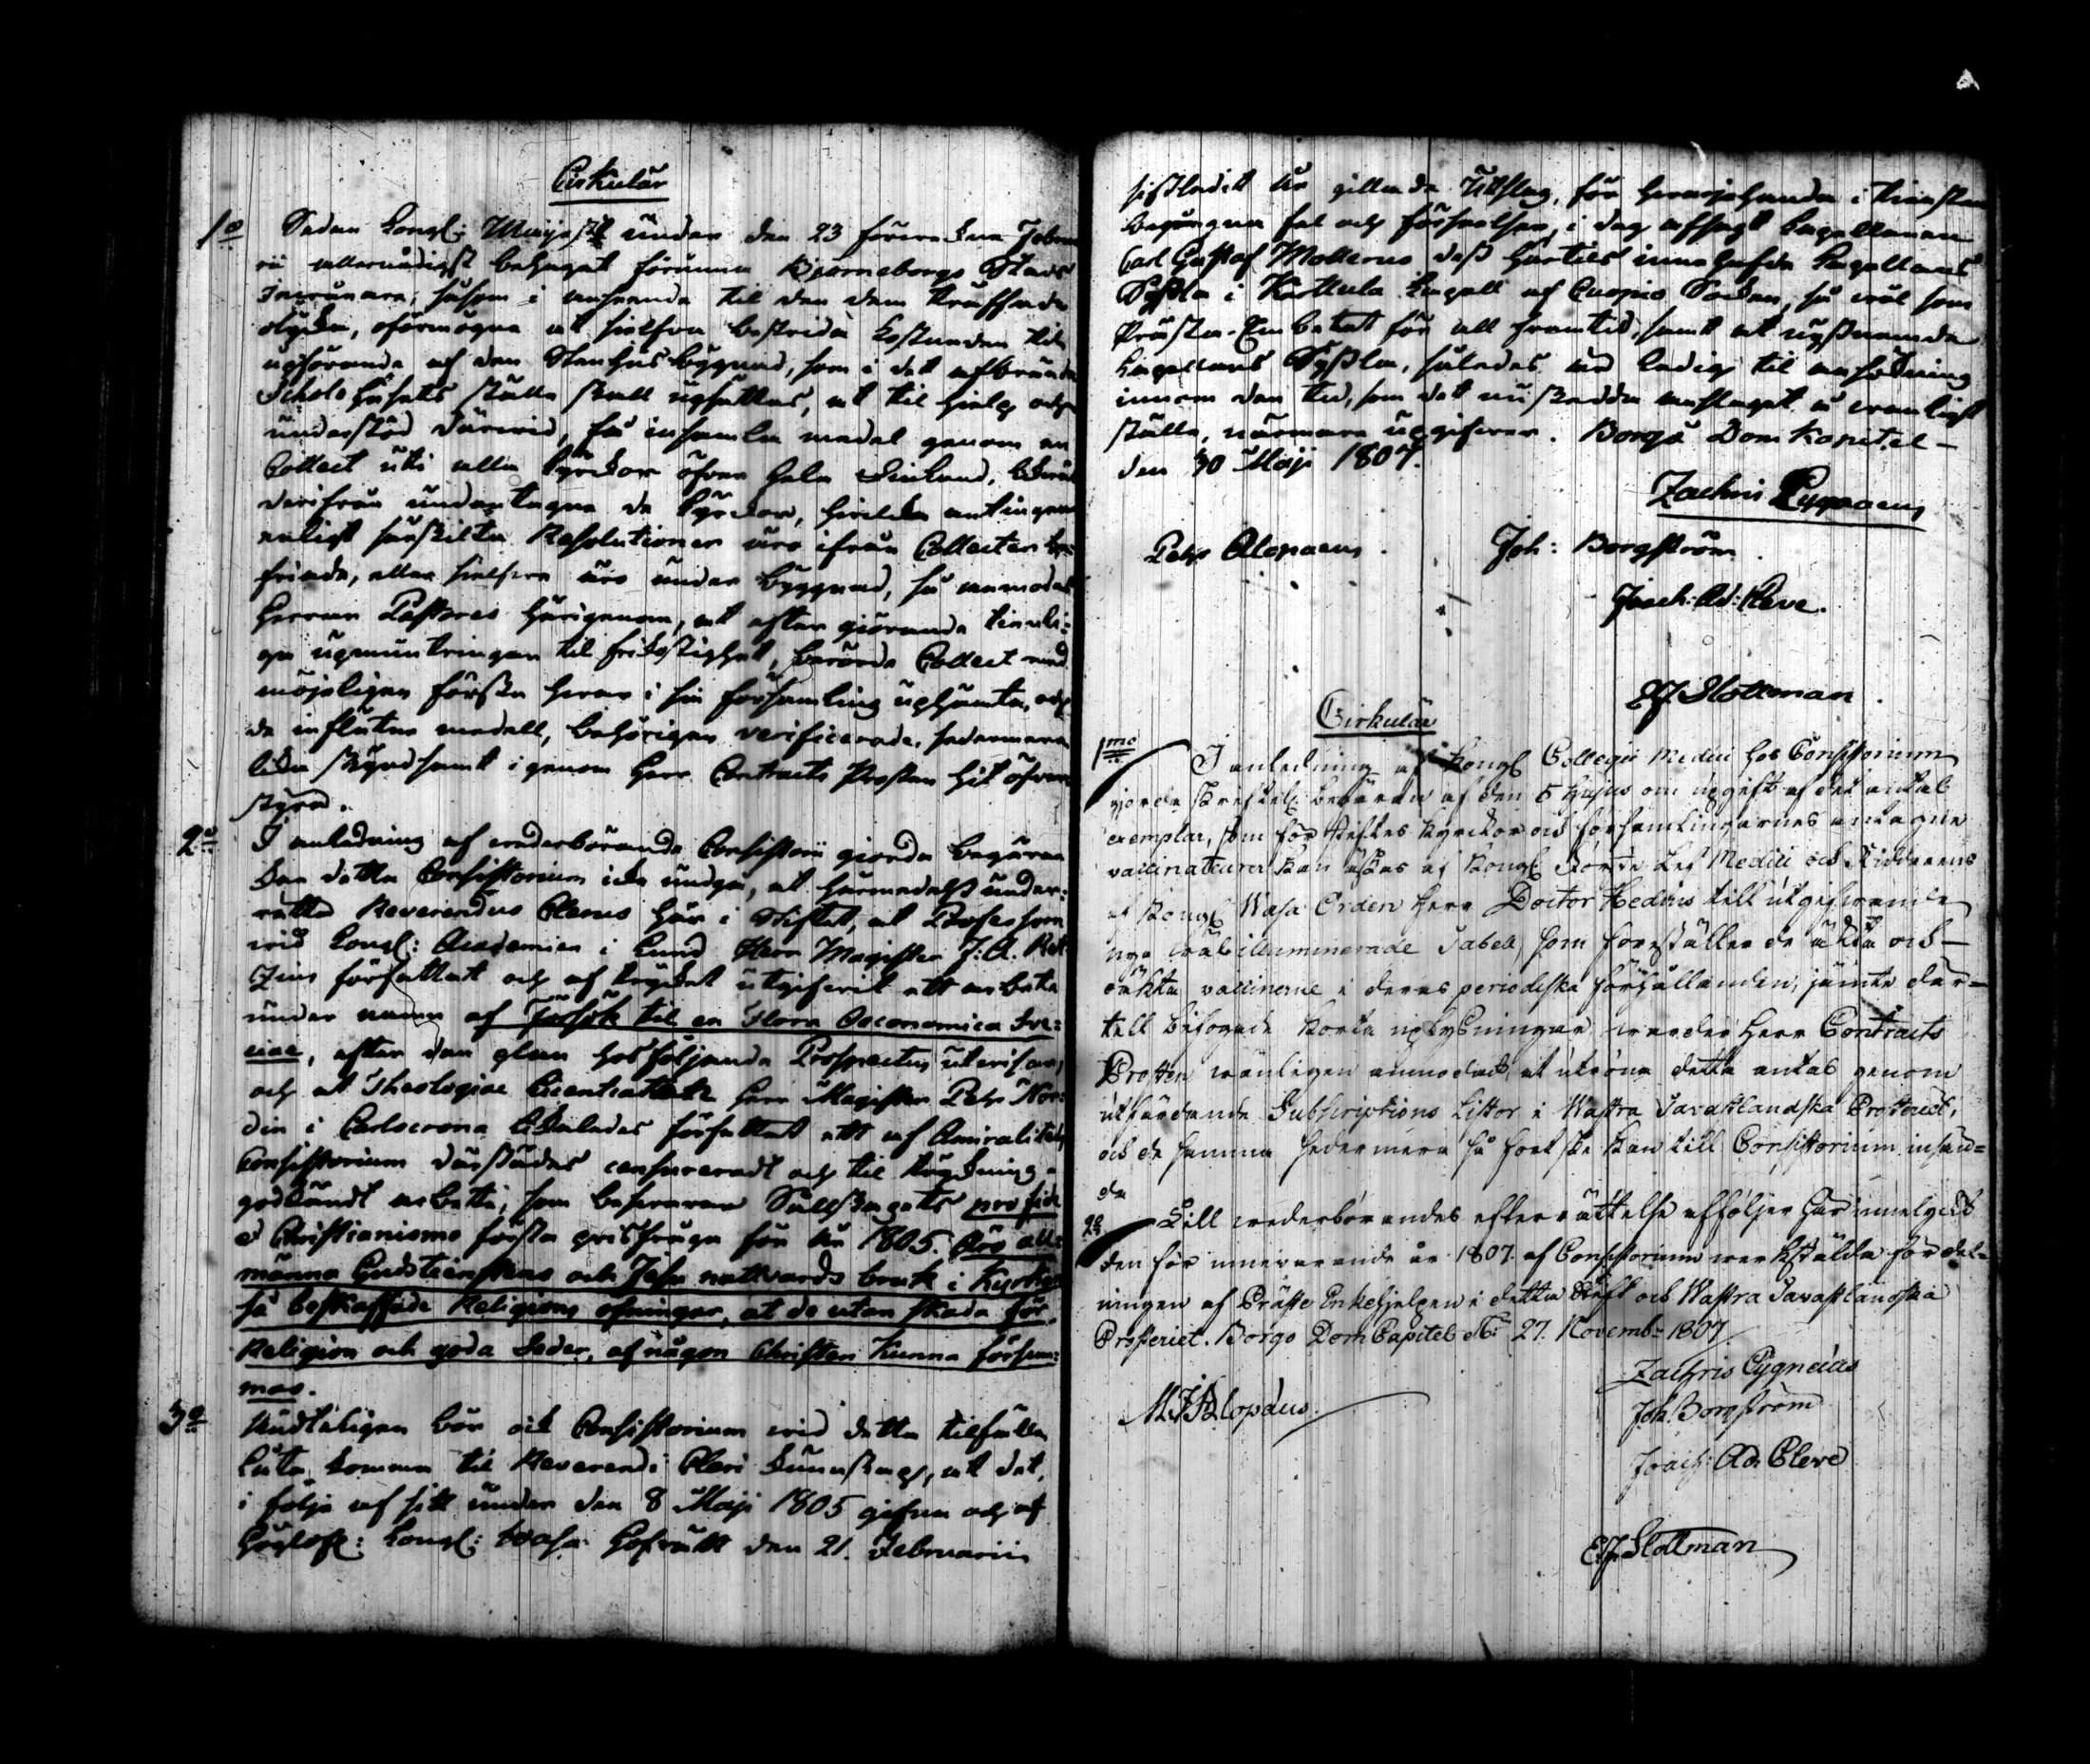 Cirkulär
1o Sedan Kongl: Maijestet under den 23 förveckne Februa
rii allernådigst behagat förunna Björneborgs Stads
Invånare, såsom i anseende til den dem träffade
olycka, oförmögne at sielfva bestrida kostnaden til
upförande af den Stenhus byggnad, som i det afbrända
Schole husets ställe skall upsättas, at til hielp och
understöd därvid, få insamla medel genom en
Collect uti alla kyrckor öfver hela Finland,
derifrån undantagne de kyrckor, hvilcka antingen
enligt särskilta Resolutioner äro ifrån Collecter be-
friade, eller sielfva äro under byggnad, så anmodas
Herrar Pastores härigenom, at efter giörande tienli-
ga upmuntringar til frikostighet, berörde Collect med
möjeligen första hvar i sin församling uphämta, och
de influtne medell, behörigen verificerade, sedermera
lika skyndsamt igenom Herr Contracts Prosten hit öfver-
styra.
2o I anledning af vederbörande Consistorii giorde begäran
kan detta Consistorium icke undgå, at härmedelst under-
rätta Reverendus Clerus här i Stiftet, at Professoren
vid Kongl: Academien i Lund Herr Magister J: A. Ret-
zius författat och af trycket utgifvit ett arbete
under namn af Försök til en Flora Oeconomica Sve-
ciae, efter den plan hosföljande Prospectus utvisar,
och at Theologiae Licentiaten Herr Magister Petr. Nor-
din i Carlscrona likaledes författat ett af Amiralitets
Consistorium därstädes censureradt och til tryckning
godkändt arbete, som besvarar Sällskapets pro fide
et Christianismo första prisfråga för år 1805. Äro all-
männa Gudstiensten och Jesu nattvards bruk i Kyrkan
så beskaffade Religions öfningar, at de utan skada för
Religion och goda Seder, af någon Christen kunna försum-
mas.
3o Ändteligen bör ock Consistorium vid detta tilfälle
låta komma til Reverendi Cleri kunskap, at det,
i följe af sitt under den 8 Maji 1805 gifna och af
Höglofl: Kongl: Wasa Hofrätt den 21. Februarii
sistledit år gillade Utslag, för hvarjehanda i tiensten
begångna fel och förseelser, i dag afsagt Capellanen
Carl Gustaf Mollerus dess härtils innehafde Capellans
Syssla i Karttula Capell af Cuopio Socken, så väl som
Prästa-Embetet för all framtid, samt at upbenämde
Capellans Syssla, således är ledig til ansökning
innom den tid, som det nu skedda anslaget å vanligt
ställe, närmare upgifver. Borgå Dom Kapitel
den 30 Maji 1807.
Zachris Cygnaeus
Petr. Alopaeus. Joh: Borgström.
Joach: Ad: Cleve.
E J Slottman.
Cirkulär
1mo I anledning af Kongl Collegii Medici hos Consistorium
gjorde skriftel. begäran af den 5 hujus om upgift af det antal
exemplar, som för stiftes kyrckor och församlingarnes antagne
vaccinateurer kan äskas af Kongl Förste Lif Medici och Riddarens
af Kongl Wasa Orden Herr Doctor Hedins till utgifvande
nya illuminerade Tabell, som föreställer de äkta och
oäkta vaccinerne i deras periodiska förhållanden, jämte där-
till bifogade korta uplysningar warder Herr Contracts
Prosten wänligen anmodad, at utröna detta antal genom
utfärdande Subscriptions Listor i Wästra Tavastlandska Prosteriet,
och de samma sedermera så fort ske kan till Consistorium insän-
da
2o Till wederbörandes efterrättelse afföljer här innelyckt
den för innevarande år 1807. af Consistorium werkstälda fördel-
ningen af Präste Enkehjelpen i detta Stift och Wästra Tavastlandska
Prosteriet. Borgo DomCapitel d. 27. Novemb. 1807
Zachris Cygnæus
M J Alopæus. Joh. Borgström
Joach: Ad. Cleve
E J Slottman